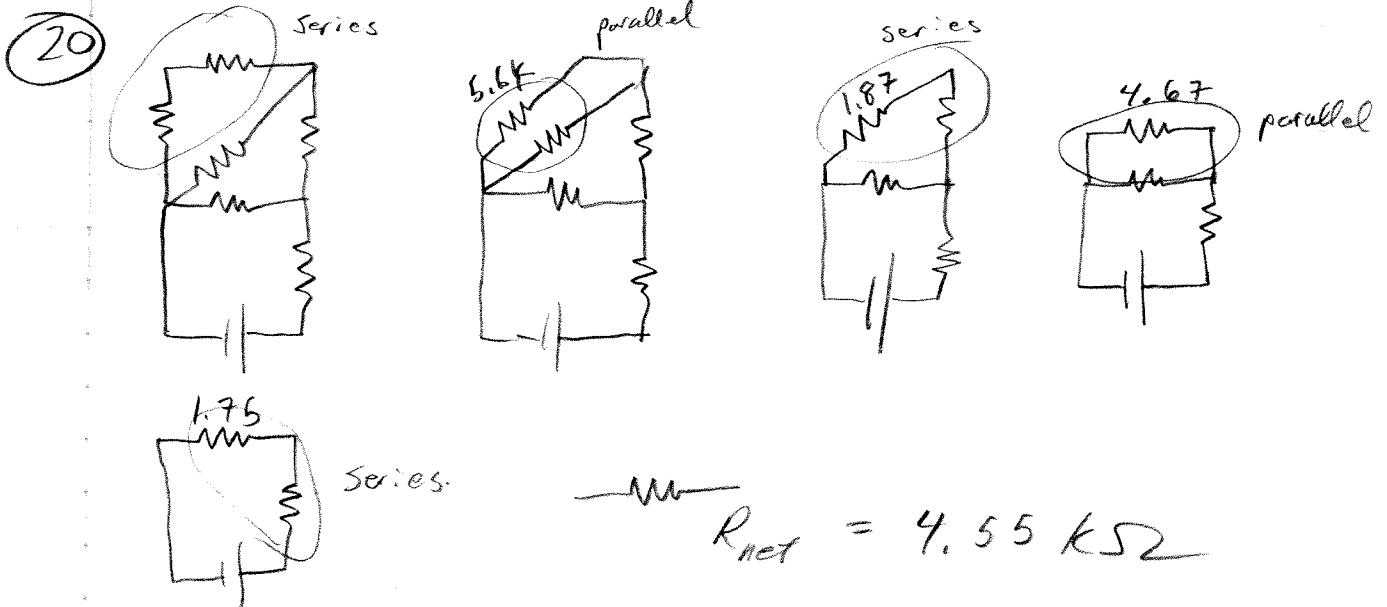 20
series
parallel
5.6K
series
1.87
4.67
parallel
1.75
Series.
Rnet = 4.55 kΩ